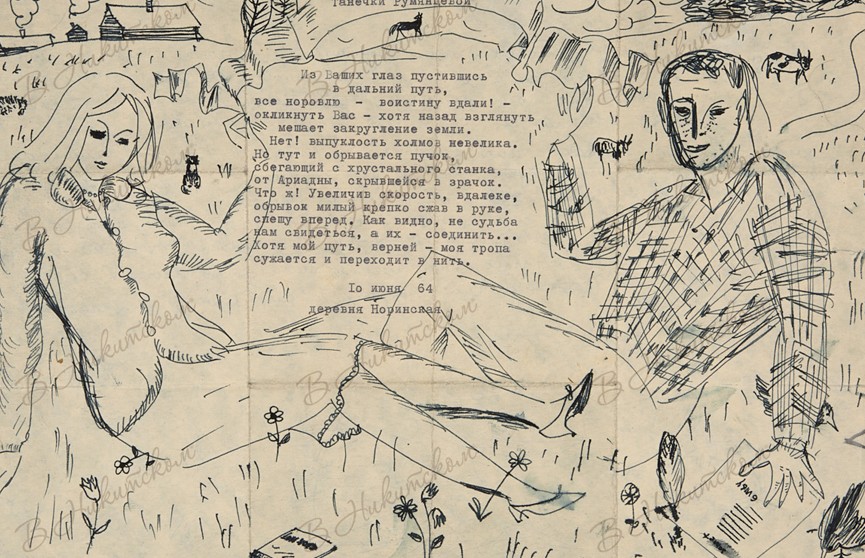 Танечки Румянцевой
Из Ваших глаз пустившись
в дальний путь,
все норовлю - воистину вдали! -
окликнуть Вас - хотя назад взглянуть
мешает закругление земли.
Нет! выпуклость холмов невелика.
Но тут и обрывается пучок,
сбегающий с хрустального станка,
от Ариадны, скрывшейся в зрачок.
Что ж! Увеличив скорость, вдалеке,
обрывок милый крепко сжав в руке,
спешу вперед. Как видно, не судьба
нам свидеться, а их - соединить...
Хотя мой путь, верней - моя тропа
сужается и переходит в нить.
Iо июня 64
деревня Норинская
В Никитском